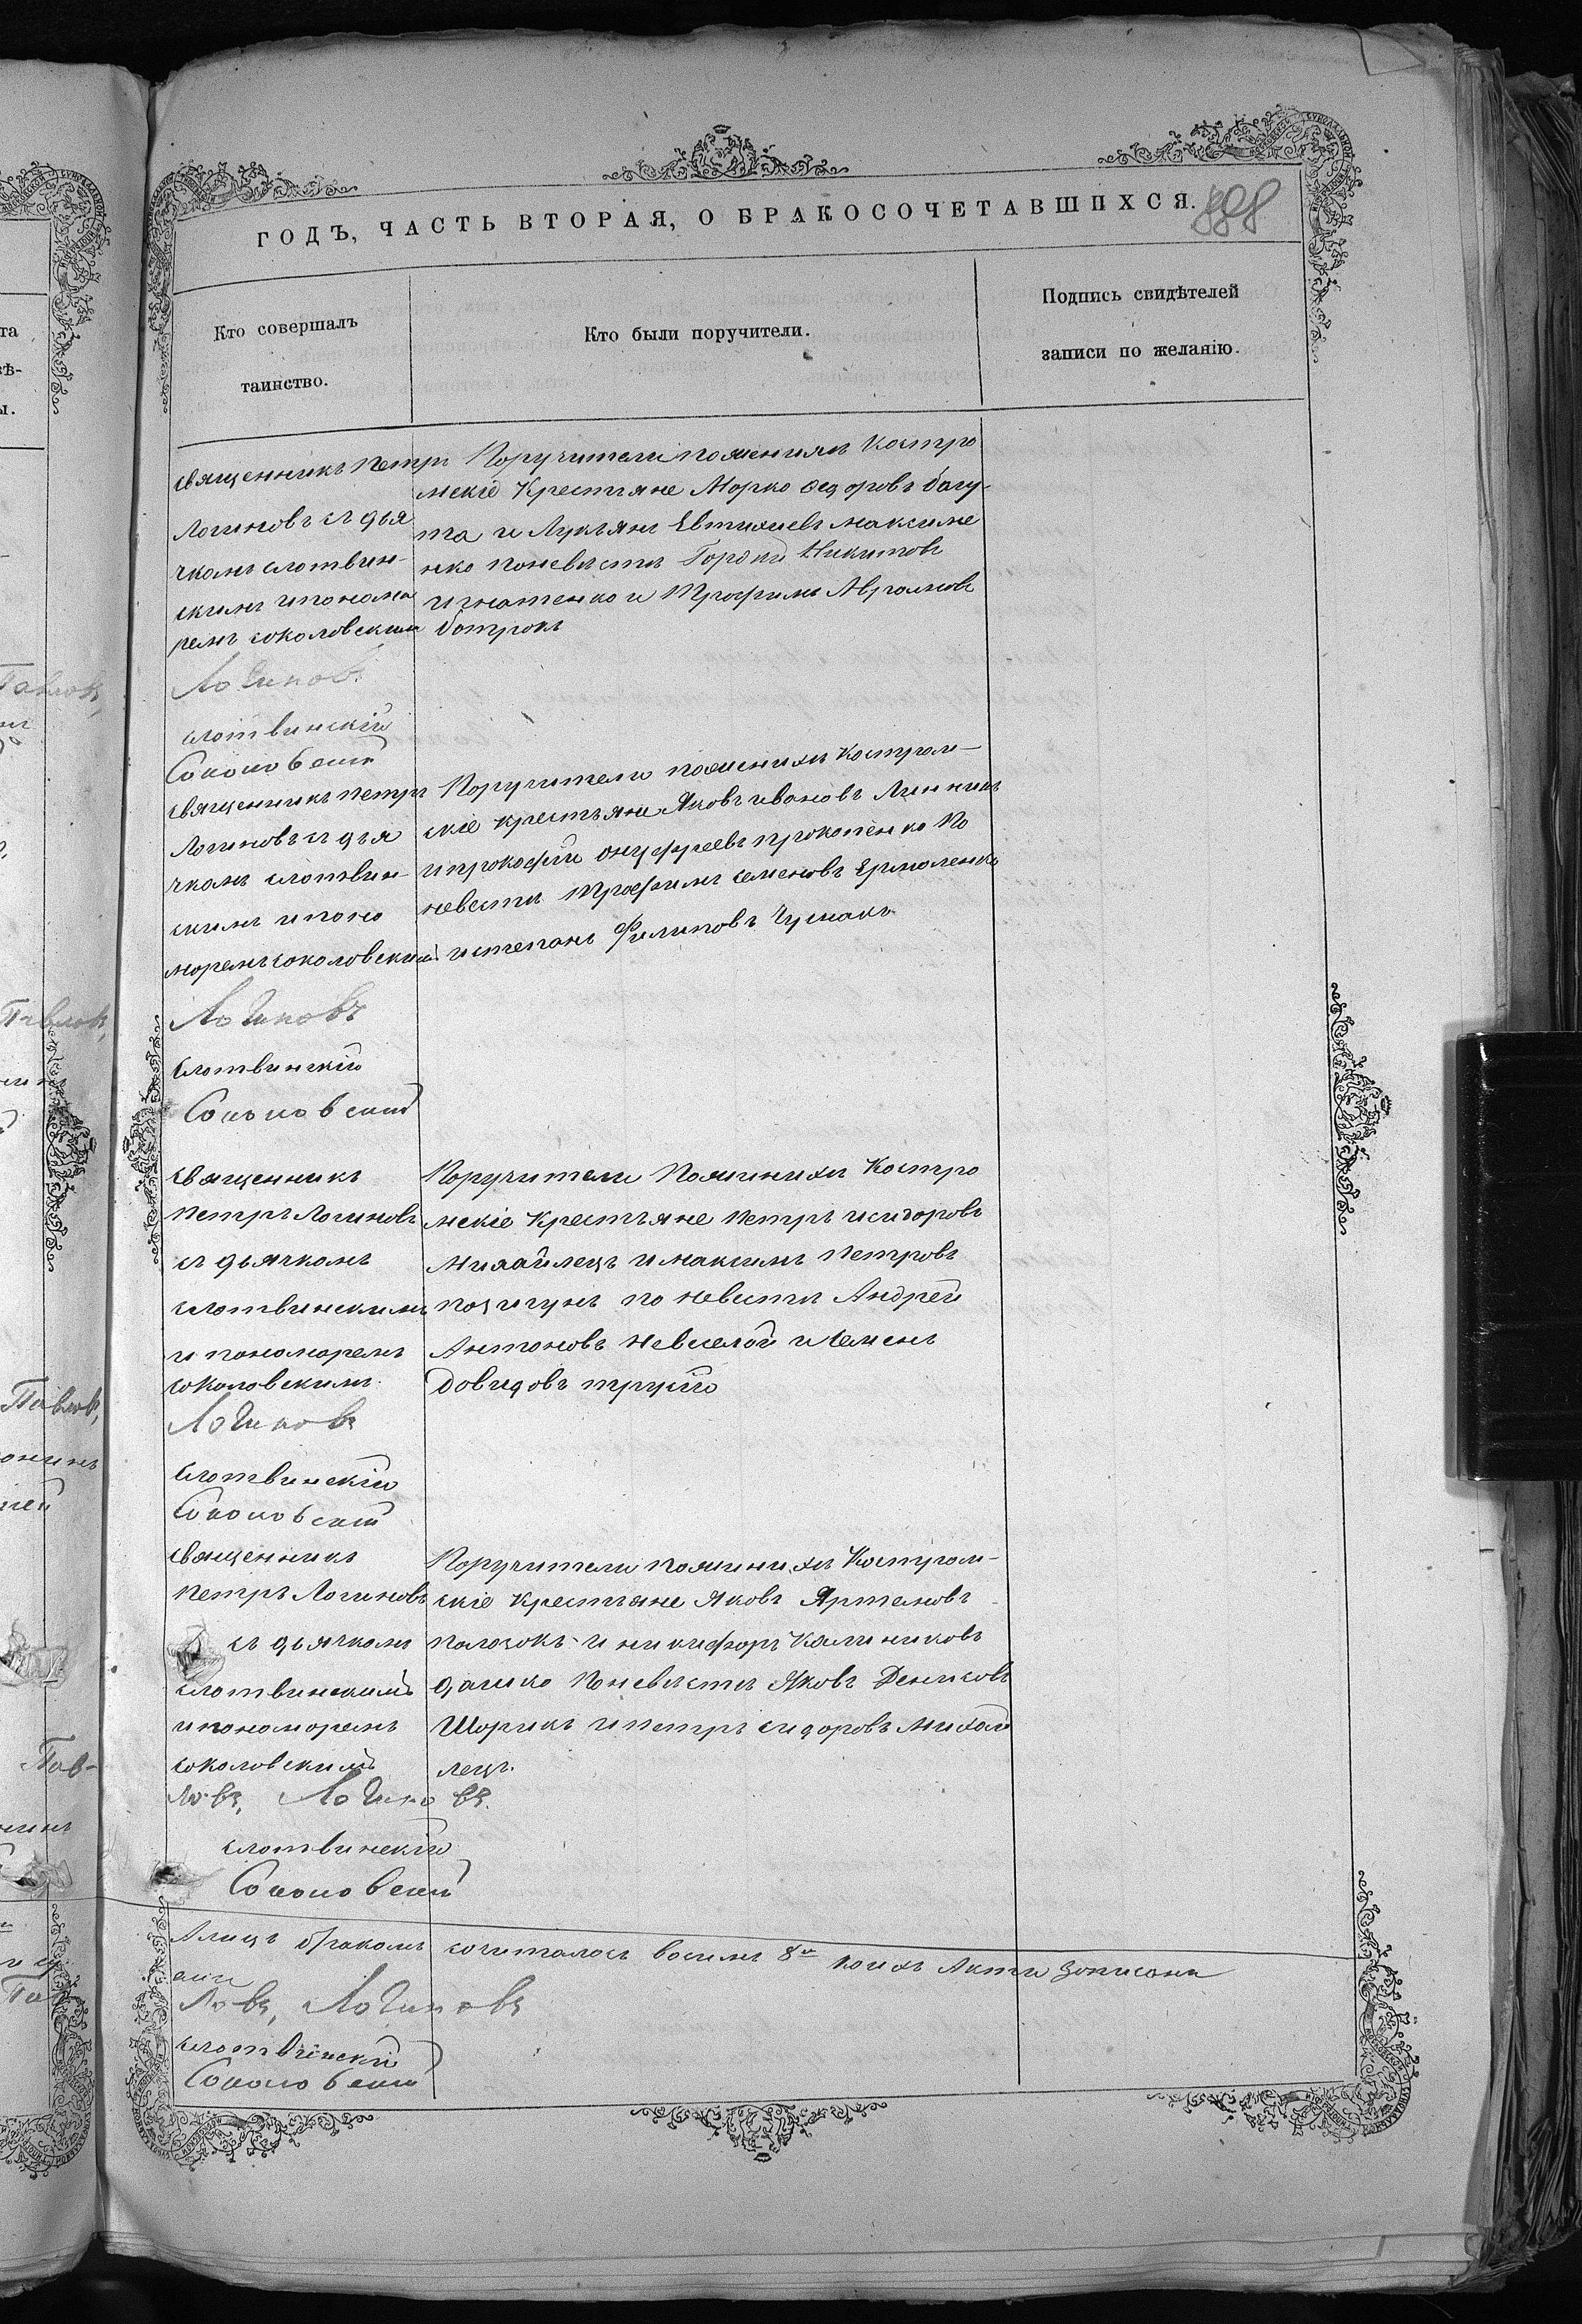 ГОДЪ, ЧАСТЬ ВТОРАЯ, О БРАКОСОЧЕТАВШИХСЯ.
Кто совершалъ
таинство.
Кто были поручители.
Подпись свидѣтелей
записи по желанію.
священникъ петръ
Логиновъ съ дья
чкомъ слотвин-
скимъ и понома
ремъ соколовскимъ
Логиновъ
слотвинскій
Соколовскій
Поручители по женихѣ Костро
мскіе Крестьяне Марко Федоровъ багу-
та и Лукъянъ Евтихіевъ максиме
нко по невѣстѣ Гордѣй Никитовъ
игнатенко и Трофимъ Аврамовъ
ботрокъ
священникъ петръ
Логиновъ съ дья
чкомъ слотвин-
скимъ и поно
моремъ соколовскимъ
Логиновъ
слотвинскій
Соколовскій
Поручители по женихѣ Костром-
скіе крестьяне Яковъ ивановъ Линникъ
и прокофій онуфріевъ прокопенко По
невестѣ Трофимъ семеновъ Ермоленко
и степанъ Филиповъ Чумакъ
священникъ
петръ Логиновъ
съ дьячкомъ
слотвинскимъ
и пономоремъ
соколовскимъ
Логиновъ
слотвинскій
Соколовскій
Поручители По жинихѣ Костро
мскіе Крестьяне петръ исидоровъ
михайлецъ и максимъ петровъ
по невестѣ Андрей
Антоновъ Невселой и семенъ
Довидовъ
священникъ
петръ Логиновъ
съ дьячкомъ
слотвинскимъ
и пономоремъ
соколовскимъ
Логиновъ
слотвинскій
Соколовскій
Поручители по жинихѣ Костром-
скіе крестьяне Яковъ Артемовъ
и никифоръ Калиниковъ
дашко По невѣстѣ Яковъ Денисовъ
Шорикъ и петръ сидоровъ михай
лецъ.
А лицъ бракомъ сочиталось восимъ 8 коихъ Акти записани
Логиновъ
слотвинскій
Соколовскій